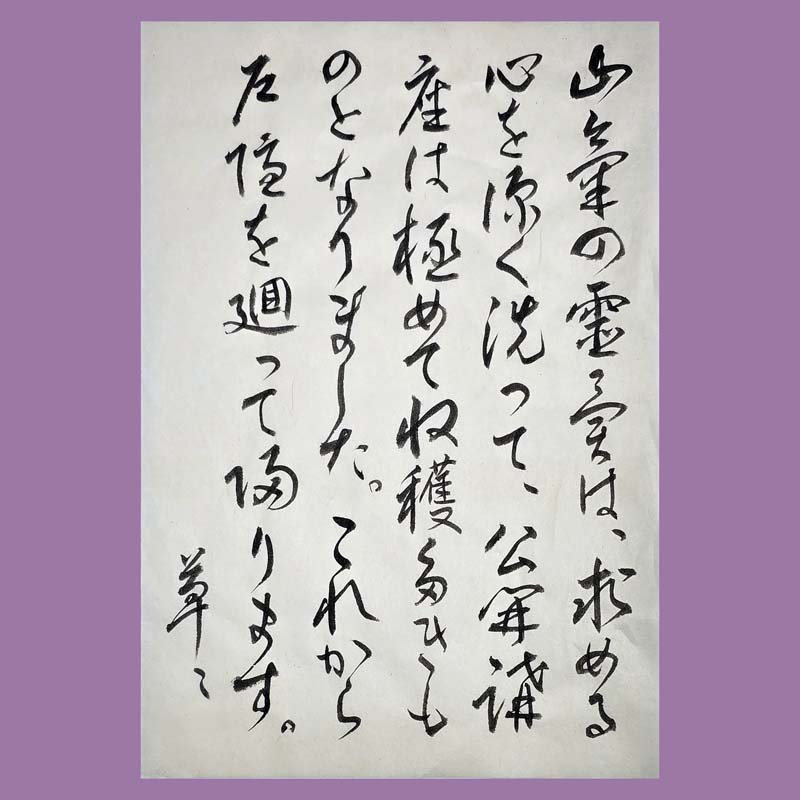 山氣の靈は、求める
心を深く洗って、公開講
座は極めて収穫多きも
のとなりました。これから
戸隠を廻って帰ります。
草〻